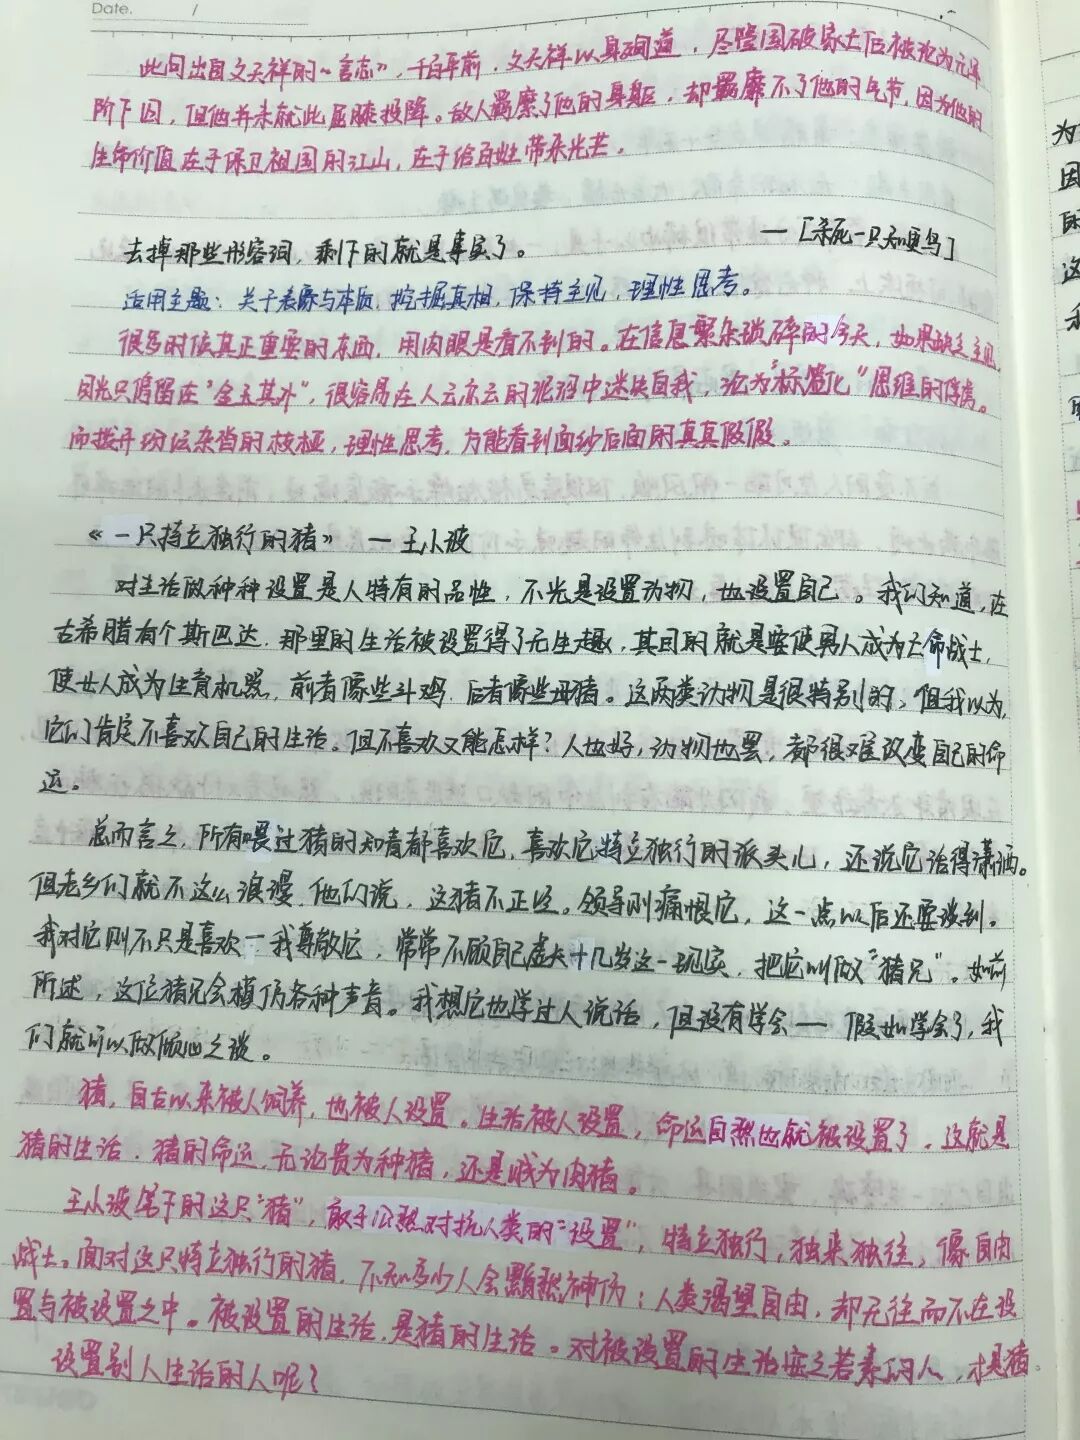 Date. /
此句出自文天祥的"言志",千百年前,文天祥以身殉道,尽管国破家亡后被沦为元军
阶下囚,但他并未就此屈膝投降。敌人羁縻了他的身躯,却羁縻不了他的气节,因为他的
生命价值在于保卫祖国的江山,在于给百姓带来光芒。
去掉那些形容词,剩下的就是事实了。 —[杀死一只知更鸟]
适用主题:关于表象与本质,挖掘真相,保持主见,理性思考。
很多时候真正重要的东西,用肉眼是看不到的。在信息繁杂琐碎的今天,如果缺乏主见,
目光只停留在"金玉其外",很容易在人云亦云的泥沼中迷失自我,沦为"标签化"思维的俘虏。
而拨开纷纭杂沓的枝桠,理性思考,方能看到面纱后面的真真假假。
《一只特立独行的猪》 —王小波
对生活做种种设置是人特有的品性,不光是设置动物,也设置自己。我们知道,在
古希腊有个斯巴达,那里的生活被设置得了无生趣,其目的就是要使男人成为亡命战士,
使女人成为生育机器,前者像些斗鸡,后者像些母猪。这两类动物是很特别的,但我以为,
它们肯定不喜欢自己的生活。但不喜欢又能怎样?人也好,动物也罢,都很难改变自己的命
运。
总而言之,所有喂过猪的知青都喜欢它,喜欢它特立独行的派头儿,还说它活得潇洒。
但老乡们就不这么浪漫,他们说,这猪不正经。领导则痛恨它,这一点以后还要谈到。
我对它则不只是喜欢—我尊敬它,常常不顾自己虚长十几岁这一现实,把它叫做"猪兄"。如前
所述,这位猪兄会模仿各种声音。我想它也学过人说话,但没有学会——假如学会了,我
们就可以做倾心之谈。
猪,自古以来被人饲养,也被人设置。生活被人设置,命运自然也就被设置了,这就是
猪的生活,猪的命运,无论贵为种猪,还是贱为肉猪。
王小波笔下的这只"猪",敢于公然对抗人类的"设置",特立独行,独来独往,像自由
战士。面对这只特立独行的猪,不知多少人会黯然神伤:人类渴望自由,却无往而不在设
置与被设置之中。被设置的生活,是猪的生活。对被设置的生活安之若素的人,才是猪
设置别人生活的人呢?